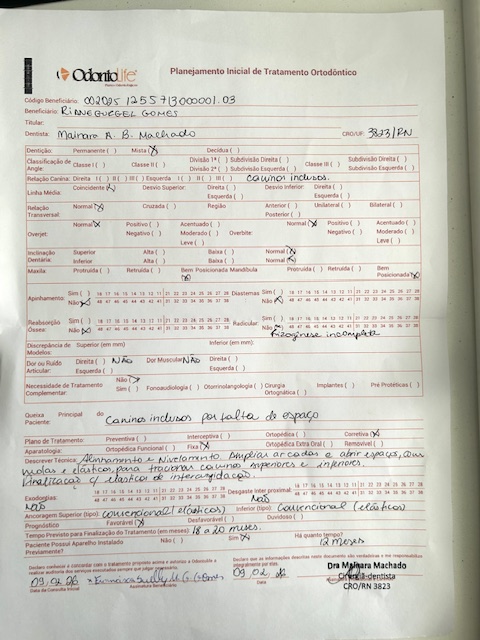 Odontolife
Planejamento Inicial de Tratamento Ortodôntico
Código Beneficiário: 002025 1255713000001.03
Beneficiário: RIANE GURGEL GOMES
Titular:
Dentista: Mainara A. B. Machado CRO/UF: 3823/RN
Dentição: Permanente ( ) Mista (X) Decídua ( )
Classificação de Angle: Classe I ( ) Classe II ( ) Divisão 1ª ( ) Subdivisão Direita ( ) Classe III ( ) Subdivisão Direita ( )
Divisão 2ª ( ) Subdivisão Esquerda ( ) Subdivisão Esquerda ( )
Relação Canina: Direita I ( ) II ( ) III ( ) Esquerda I ( ) II ( ) III ( ) caninos inclusos.
Linha Média: Coincidente (X) Desvio Superior: Direita ( ) Desvio Inferior: Direita ( )
Esquerda ( ) Esquerda ( )
Relação Transversal: Normal (X) Cruzada ( ) Região Anterior ( ) Unilateral ( ) Bilateral ( )
Posterior ( )
Overjet: Normal (X) Positivo ( ) Acentuado ( ) Overbite: Normal (X) Positivo ( ) Acentuado ( )
Negativo ( ) Moderado ( ) Negativo ( ) Moderado ( )
Leve ( ) Leve ( )
Inclinação Dentária: Superior Alta ( ) Baixa ( ) Normal (X)
Inferior Alta ( ) Baixa ( ) Normal (X)
Maxila: Protruída ( ) Retruída ( ) Bem Posicionada (X) Mandíbula Protruída ( ) Retruída ( ) Bem Posicionada (X)
Apinhamento: Sim ( ) 18 17 16 15 14 13 12 11 21 22 23 24 25 26 27 28 Diastemas Sim ( ) 18 17 16 15 14 13 12 11 21 22 23 24 25 26 27 28
Não (X) 48 47 46 45 44 43 42 41 31 32 33 34 35 36 37 38 Não (X) 48 47 46 45 44 43 42 41 31 32 33 34 35 36 37 38
Reabsorção Óssea: Sim ( ) 18 17 16 15 14 13 12 11 21 22 23 24 25 26 27 28 Radicular Sim ( ) 18 17 16 15 14 13 12 11 21 22 23 24 25 26 27 28
Não (X) 48 47 46 45 44 43 42 41 31 32 33 34 35 36 37 38 Não (X) 48 47 46 45 44 43 42 41 31 32 33 34 35 36 37 38
Rizogênese incompleta
Discrepância de Modelos: Superior (em mm) Inferior (em mm):
Dor ou Ruído Articular: Direita ( ) NÃO Dor Muscular NÃO Direita ( )
Esquerda ( ) Esquerda ( )
Necessidade de Tratamento Complementar: Não (X)
Sim ( ) Fonoaudiologia ( ) Otorrinolangologia ( ) Cirurgia Ortognática ( ) Implantes ( ) Pré Protéticos ( )
Queixa Principal do Paciente: Caninos inclusos por falta de espaço
Plano de Tratamento: Preventiva ( ) Interceptiva ( ) Ortopédica ( ) Corretiva (X)
Aparatologia: Ortopédica Funcional ( ) Fixa (X) Ortopédica Extra Oral ( ) Removível ( )
Descrever Técnica: Alinhamento e Nivelamento. Ampliar arcadas e abrir espaços, com
molas e elásticos, para tracionar caninos superiores e inferiores.
Finalização c/ elásticos de intercuspidação
Exodontias: 18 17 16 15 14 13 12 11 21 22 23 24 25 26 27 28 Desgaste Inter proximal: 18 17 16 15 14 13 12 11 21 22 23 24 25 26 27 28
NÃO 48 47 46 45 44 43 42 41 31 32 33 34 35 36 37 38 NÃO 48 47 46 45 44 43 42 41 31 32 33 34 35 36 37 38
Ancoragem Superior (tipo): convencional (elásticos) Inferior (tipo): Convencional (elásticos)
Prognóstico Favorável (X) Desfavorável ( ) Duvidoso ( )
Tempo Previsto para Finalização do Tratamento (em meses): 18 a 20 meses.
Paciente Possui Aparelho Instalado Previamente? Não ( ) Sim (X) Há quanto tempo? 12 meses
Declaro conhecer e concordar com o tratamento proposto acima e autorizo a Odontolife a realizar auditoria dos serviços executados sempre que julgar necessário.
Declaro que as informações descritas neste documento são verdadeiras e me responsabilizo integralmente por elas.
09.02.26
Data da Consulta Inicial
Assinatura Beneficiário
09.02.26
Data
Dra Mainara Machado
Cirurgiã-dentista
CRO/RN 3823